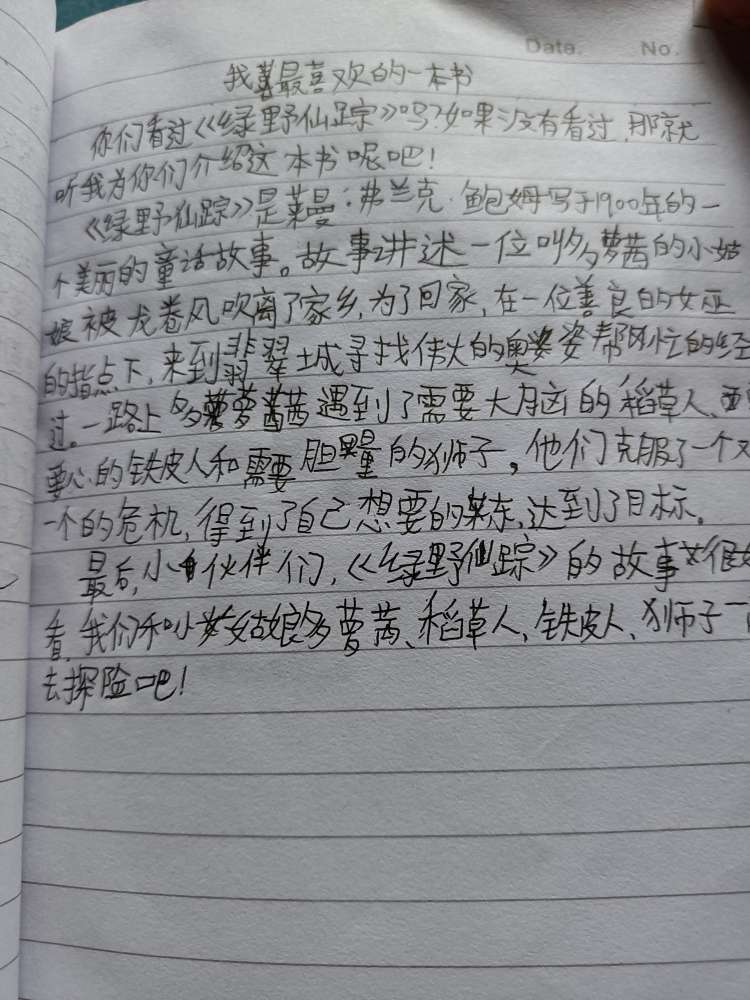 Date.   No.
我最喜欢的一本书
你们看过《绿野仙踪》吗?如果没有看过,那就
听我为你们介绍这本书呢吧!
《绿野仙踪》是莱曼·弗兰克·鲍姆写于1900年的一
个美丽的童话故事。故事讲述一位叫多萝茜的小姑
娘被龙卷风吹离了家乡,为了回家,在一位善良的女巫
的指点下,来到翡翠城寻找伟大的奥姿帮忙的经
过。一路上多萝茜遇到了需要大脑的稻草人、
要心的铁皮人和需要胆量的狮子,他们克服了一个又
一个的危机,得到了自己想要的东,达到了目标。
最后,小伙伴们,《绿野仙踪》的故事很好
看,我们和小姑娘多萝茜、稻草人,铁皮人、狮子一
去探险吧!